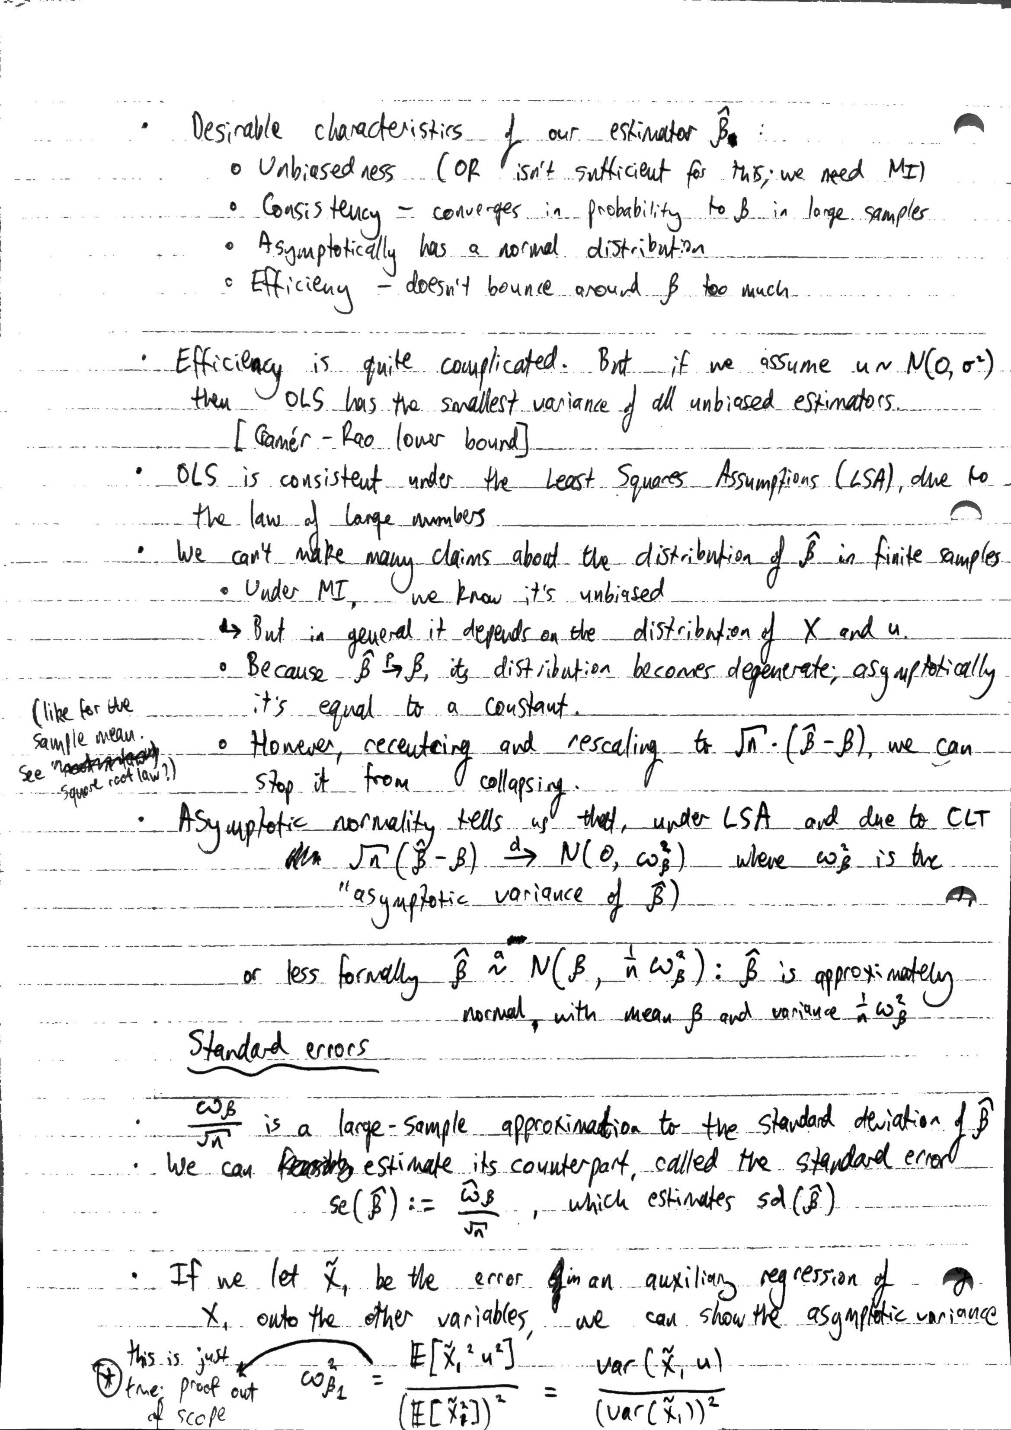 • Desirable characteristics of our estimator β̂ :
◦ Unbiasedness (OR isn't sufficient for this; we need MI)
◦ Consistency – converges in probability to β in large samples
◦ Asymptotically has a normal distribution
◦ Efficieny – doesn't bounce around β too much
• Efficiency is quite complicated. But if we assume u ~ N(0, σ²)
then OLS has the smallest variance of all unbiased estimators.
[Cramér – Rao lower bound]
• OLS is consistent under the Least Squares Assumptions (LSA), due to
the law of large numbers
• We can't make many claims about the distribution of β̂ in finite samples
• Under MI, we know it's unbiased
↳ But in general it depends on the distribution of X and u.
◦ Because β̂ →ᵖ β, its distribution becomes degenerate; asymptotically
it's equal to a constant.
(like for the
sample mean.
see "
square root law"?)
◦ However, recentering and rescaling to √n · (β̂ – β), we can
stop it from collapsing.
• Asymptotic normality tells us that, under LSA and due to CLT
√n (β̂ – β) →ᵈ N(0, ω²_β) where ω²_β is the
"asymptotic variance of β̂)
or less formally β̂ ~ᵃ N(β, 1/n ω²_β) : β̂ is approximately
normal, with mean β and variance 1/n ω²_β
Standard errors
• ω_β/√n is a large-sample approximation to the standard deviation of β̂
• We can estimate its counterpart, called the standard error
se(β̂) := ω̂_β/√n , which estimates sd(β̂)
• If we let X̃₁ be the error in an auxiliary regression of
X₁ onto the other variables, we can show the asymptotic variance
ω²_β₁ = E[X̃₁² u²] / (E[X̃₁²])² = var(X̃₁ u) / (var(X̃₁))²
this is just
true; proof out
of scope